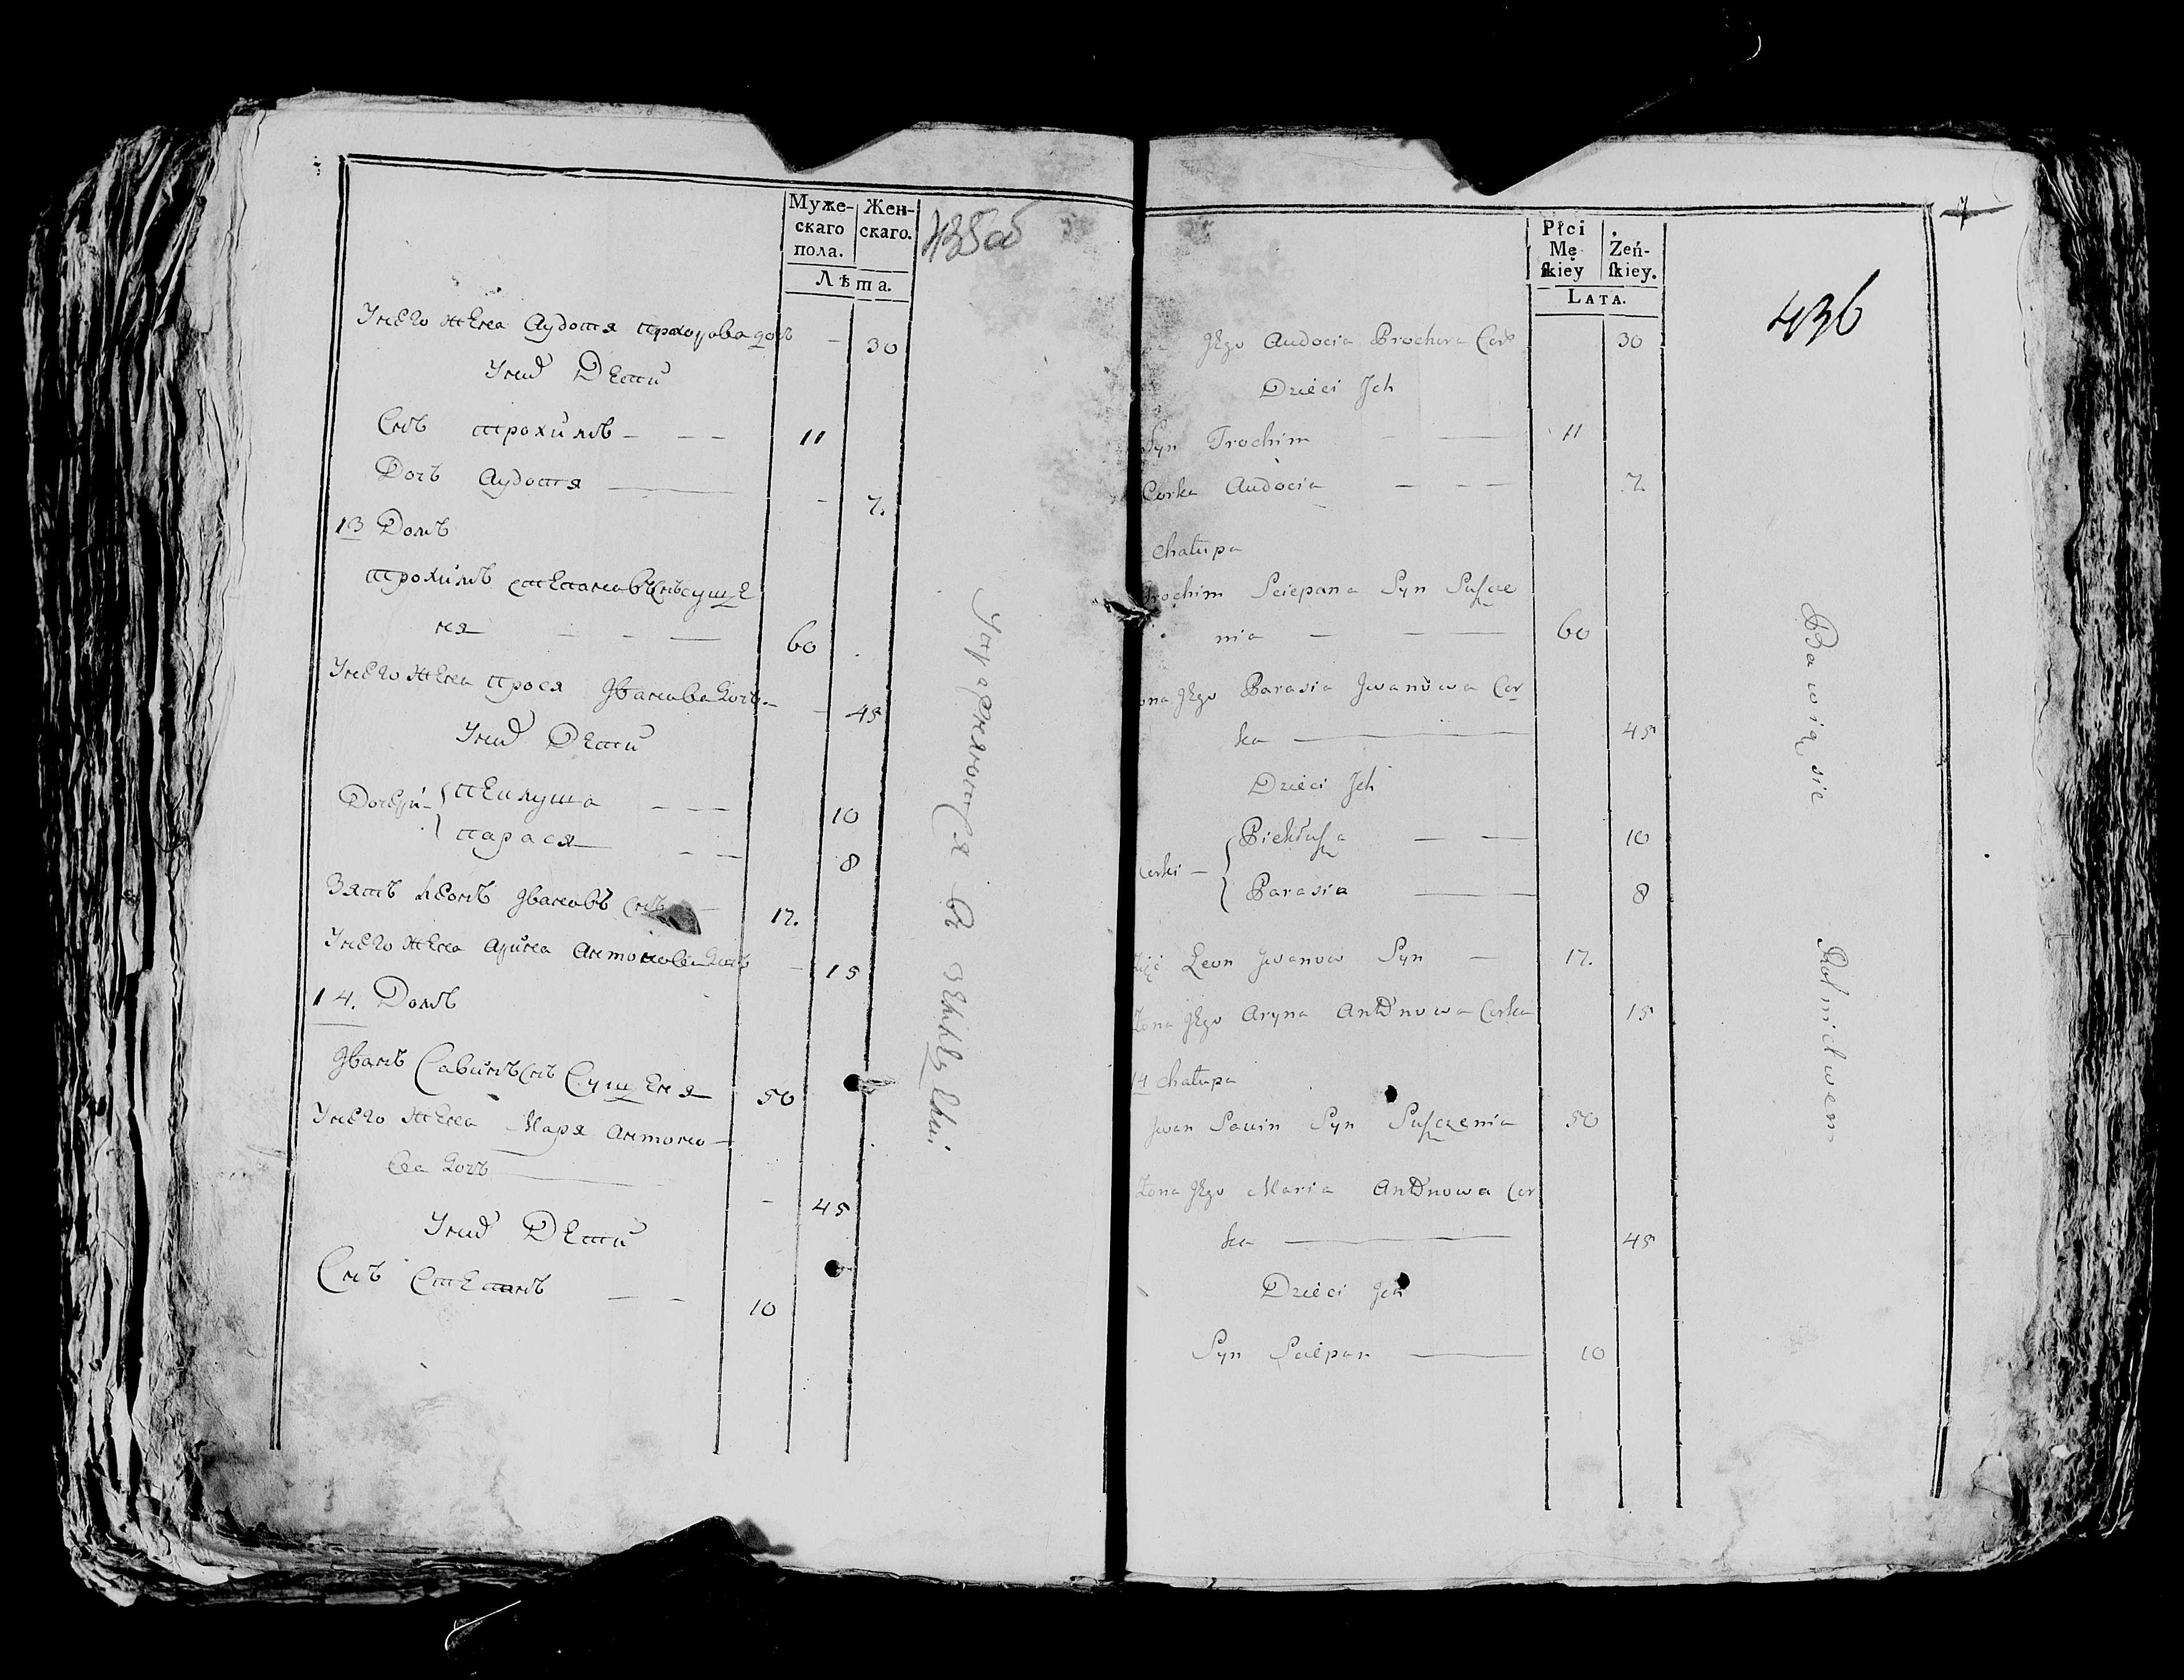 Муже-
скаго
пола.
Жен-
скаго.
Лѣта.
435об
Унего жена Аудотя прохорова дочь - 30
Уних Дети
Снъ трохимъ - - - 11
Дочь Аудотя - 7.
13 Домъ
трохимъ степановъ Снъ суще
ня - - - 60
Унего жена прося Jванова дочь - 45
Уних Дети
Дочери { пеклуша - - - 10
{ парася - - 8
Зять леонъ Jвановъ Снъ - 17.
Унего жена Арина Антонова дочь - 15
14. Домъ
Jванъ Савинъ Снъ Сущеня 50
Унего жена Маря Антоно-
ва дочь - 45
Уних Дети
Снъ Степанъ - - 10
Упражняются въ
Płci
Mę
ſkiey
Żeń-
ſkiey.
LATA.
436
Jego Audocia Prochora Cor 30
Dzieci Jch
Syn Trochim - — 11
Corka Audocia - - - 7.
Chałupa
Trochim Sciepana Syn Suſzcze
nia — - — 60
Żona Jego Parasia Jwanowa Cor
ka — 45
Dzieci Jch
Corki — { Piekłuſza — — 10
{ Parasia — 8
Zięć Leon Jwanow Syn — 17.
Zona Jego Aryna Antonowa Corka 15
14 Chałupa
Jwan Sawin Syn Suſzczenia 50
Zona Jego Maria Antonowa Cor
ka — 45
Dzieci Jch
Syn Sciepan — 10
Bawią się Rolnictwem